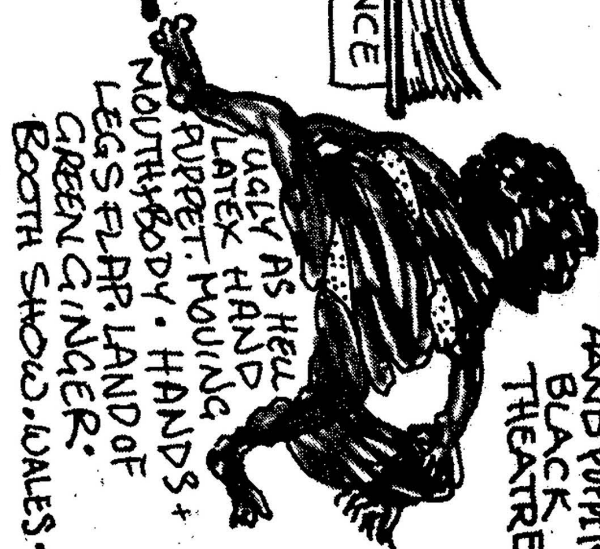 NCE
UGLY AS HELL
LATEX HAND
PUPPET. MOVING
MOUTH+BODY. HANDS+
LEGS FLAP. LAND OF
GREEN GINGER.
BOOTH SHOW. WALES.
HAND PUPPE
BLACK
THEATRE